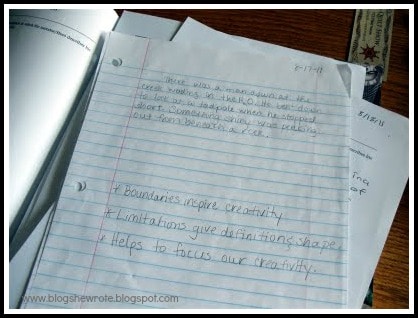 8-17-15
There was a man down at the
creek wading in the
to look at a tadpole when he stopped
short. Something shiny was peeking
out from beneath a rock.
* Boundaries inspire creativity
* Limitations give definition & shape.
* Helps to focus our creativity.
8/15/15
ing
of
www.blogshewrote.blogspot.com